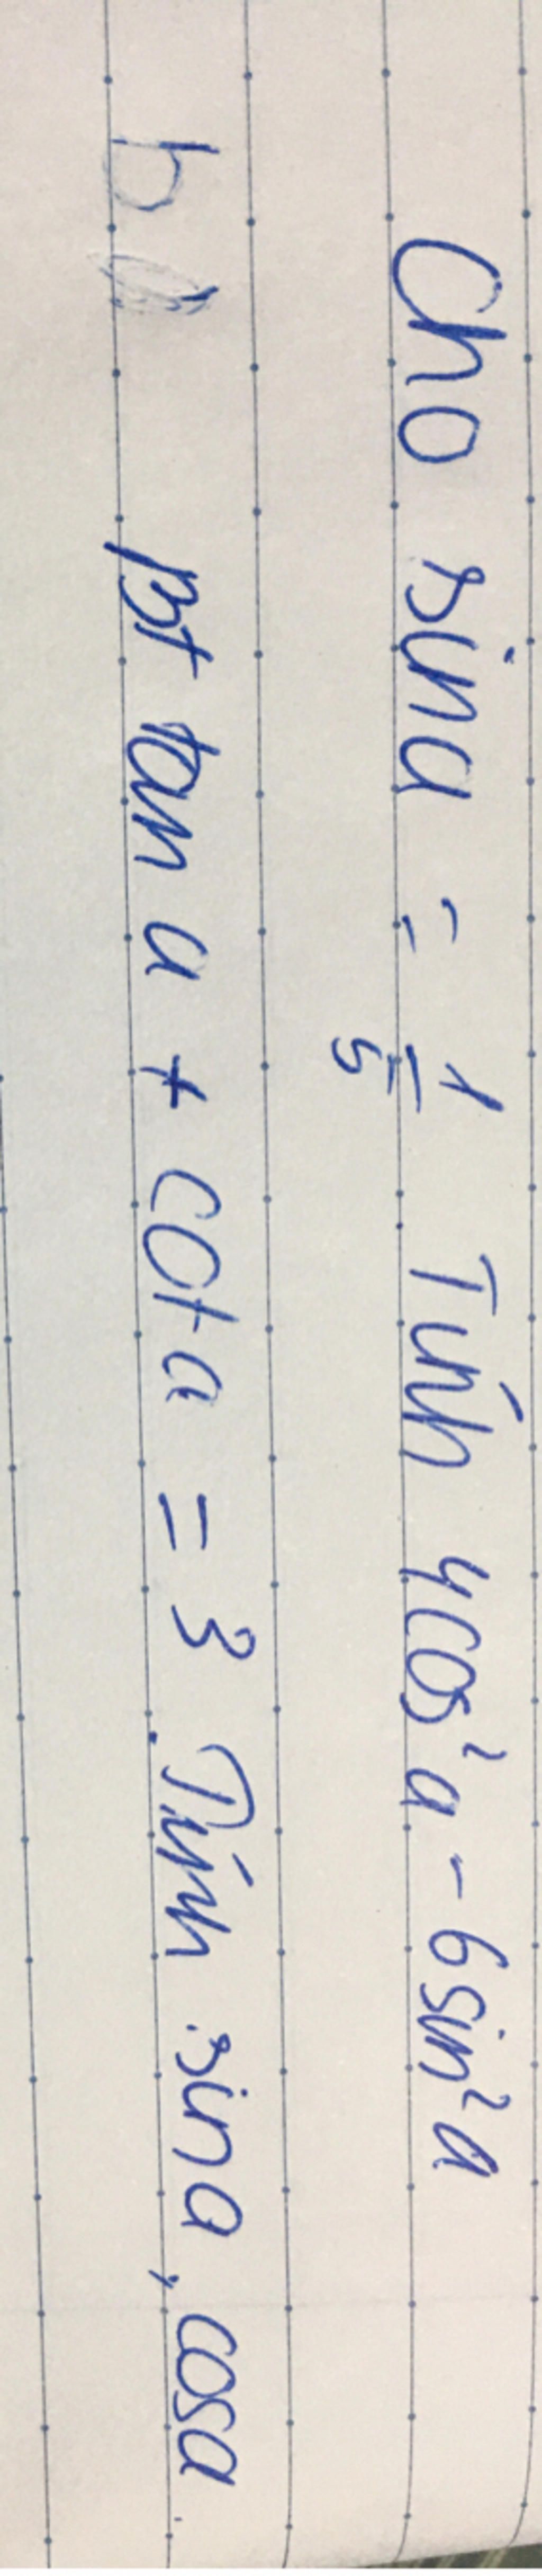 Cho sina = 1/5. Tính 4cos²a - 6sin²a
b) bt tan a + cot a = 3. Tính sina, cosa.